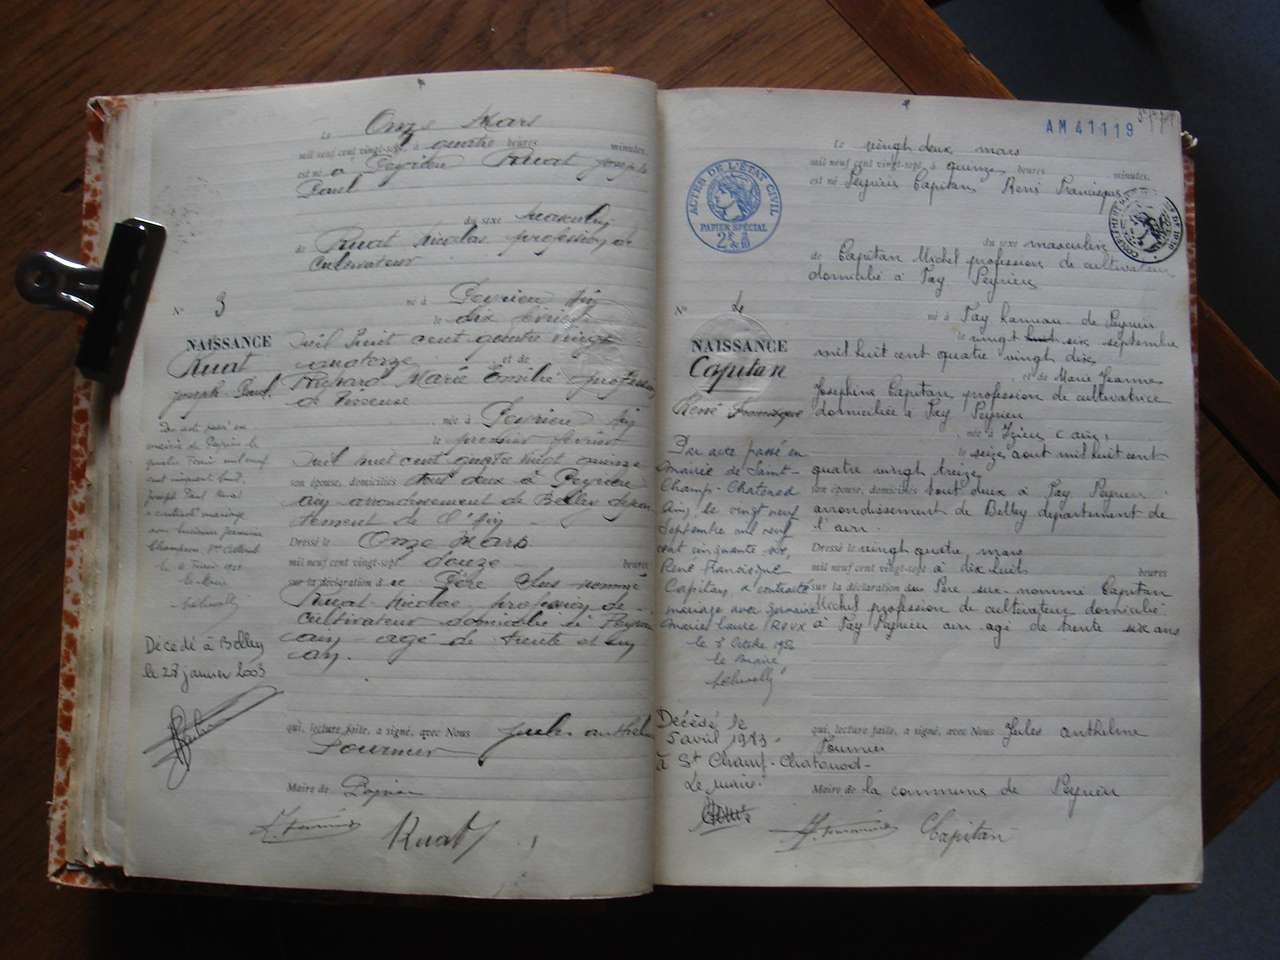 Le Onze Mars
mil neuf cent vingt-sept, à quatre heures minutes,
est né à Peyrieu Ruat Joseph
Paul
du sexe Masculin
de Ruat Nicolas profession de
Cultivateur
né à Peyrieu Ain
le dix février
mil huit cent quatre vingt
quatorze et de
Richard Marie Emilie profession
de Tisseuse
née à Peyrieu Ain
le premier février
mil huit cent quatre vingt quinze
son épouse, domiciliés tout deux à Peyrieu
ain arrondissement de Belley dépar
tement de l'Ain
Dressé le Onze Mars
mil neuf cent vingt-sept douze heures
sur la déclaration de Père sus nommé
Ruat Nicolas profession de
cultivateur domicilié à Peyrieu
ain agé de trente et un
an.
qui, lecture faite, a signé, avec Nous Jules anthelme
Fournier
Maire de Peyrieu
Ruat
N° 3
NAISSANCE
Ruat
Joseph Paul.
mairie de Peyrieu le
mil neuf
cent cinquante
Joseph Paul Ruat
a contracté mariage
avec
le Maire
Décédé à Belley
le 28 janvier 2003
AM 41119
ACTES DE L'ÉTAT CIVIL
PAPIER SPÉCIAL
Le vingt deux mars
mil neuf cent vingt-sept, à quinze heures minutes,
est né Peyrieu Capitan René Francisque
du sexe masculin
de Capitan Michel profession de cultivateur
domicilié à Fay Peyrieu
né à Fay hameau de Peyrieu
le vingt six septembre
mil huit cent quatre vingt dix
et de Marie Jeanne
Josephine Capitan, profession de cultivatrice
domiciliée à Fay Peyrieu
née à Izieu (ain)
le seize aout mil huit cent
quatre vingt treize
son épouse, domiciliés tout deux à Fay Peyrieu
arrondissement de Belley département de
l'ain.
Dressé le vingt quatre mars
mil neuf cent vingt-sept à dix huit heures
sur la déclaration du Père sus-nommé Capitan
Michel profession de cultivateur domicilié
à Fay Peyrieu ain agé de trente six ans
qui, lecture faite, a signé, avec Nous Jules anthelme
Fournier
Maire de la commune de Peyrieu
Capitan
N° 4
NAISSANCE
Capitan
René Francisque
Par acte passé en
mairie de Saint-
Champ-Chatonod
Ain, le vingt neuf
Septembre mil neuf
cent cinquante
René Francisque
Capitan a contracté
mariage avec Germaine
Marie Laure ROUX
le Octobre
le Maire,
Décédé le
5 avril 1983
à St Champ-Chatonod-
Le Maire.